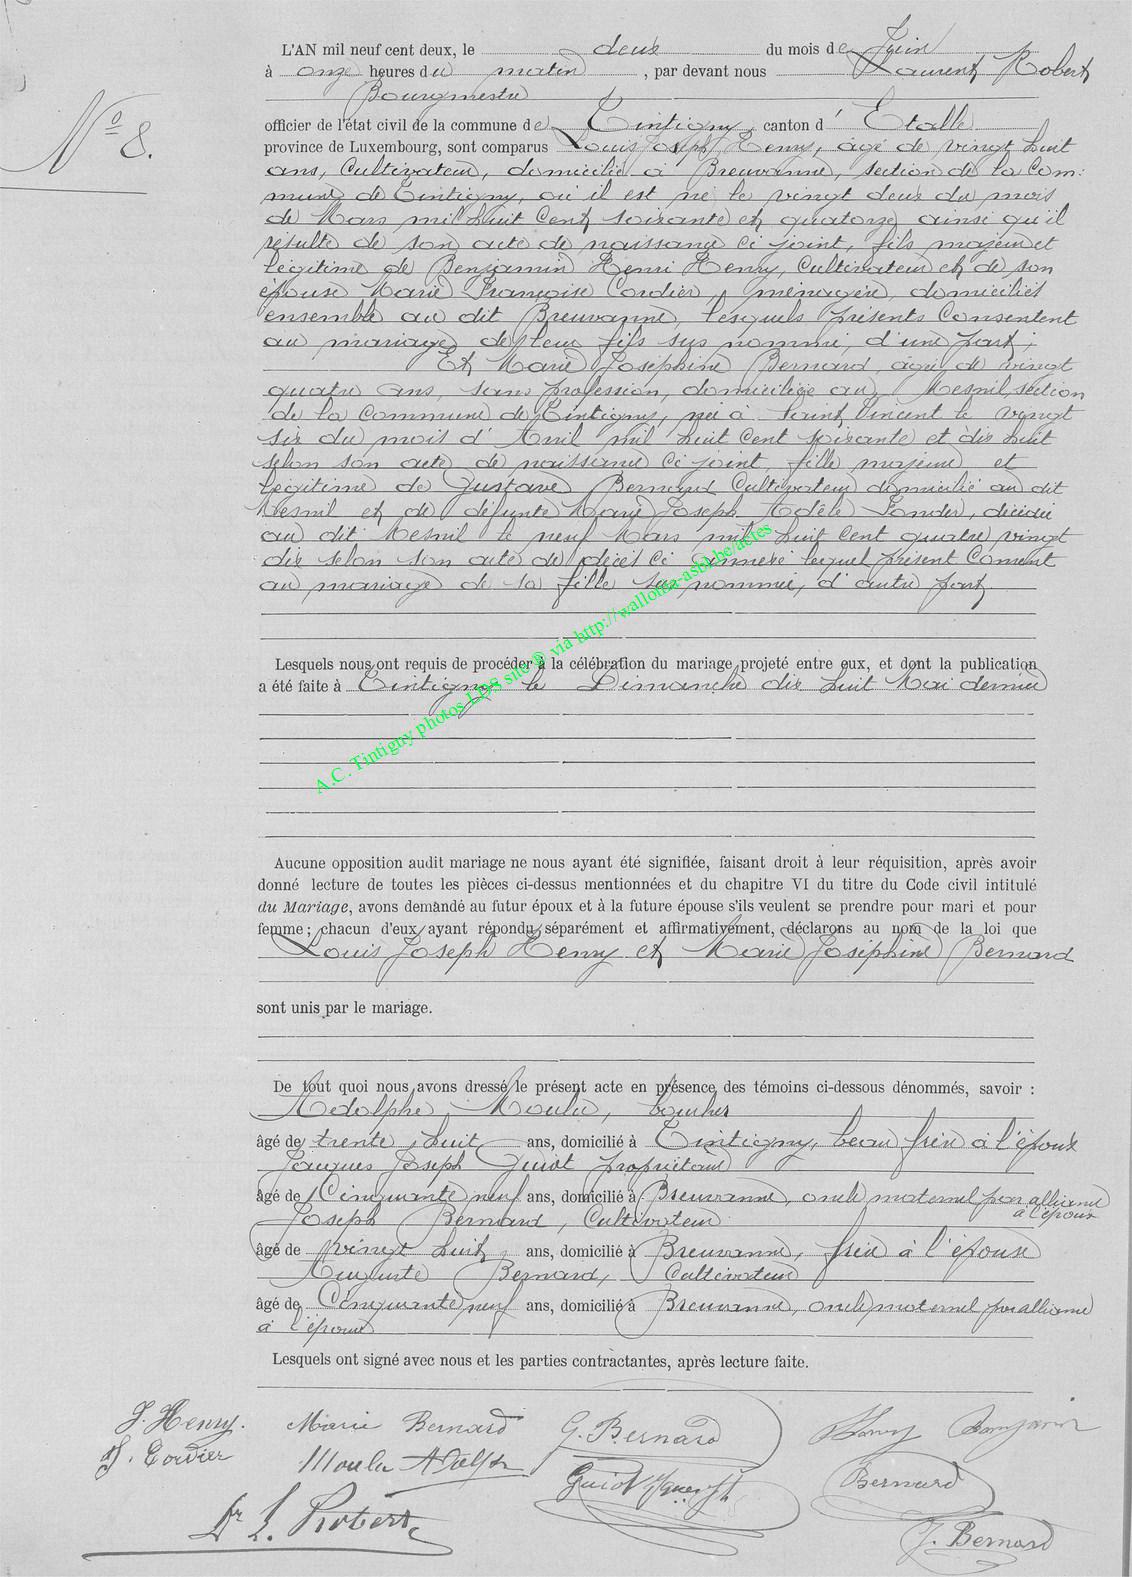 N° 8.
L'AN mil neuf cent deux, le deux du mois de Juin
à onze heures du matin, par devant nous Laurent Robert
Bourgmestre
officier de l'état civil de la commune de Tintigny, canton d'Etalle
province de Luxembourg, sont comparus Louis Joseph Henry, âgé de vingt huit
ans, Cultivateur, domicilié à Breuvanne, section de la Com:
mune de Tintigny, où il est né le vingt deux du mois
de Mars mil huit cent soixante et quatorze ainsi qu'il
résulte de son acte de naissance ci joint, fils majeur et
légitime de Benjamin Henri Henry, Cultivateur et de son
épouse Marie Françoise Cordier, ménagère, domiciliés
ensemble au dit Breuvanne, lesquels présents Consentent
au mariage de leur fils sus nommé, d'une part;
Et Marie Joséphine Bernard, âgée de vingt
quatre ans, sans profession, domiciliée au Mesnil, section
de la Commune de Tintigny, née à Saint Vincent le vingt
six du mois d'Avril mil huit Cent soixante et dix huit
selon son acte de naissance ci joint, fille majeure et
légitime de Gustave Bernard Cultivateur domicilié au dit
Mesnil et de défunte Marie Joseph Adèle, décédée
au dit Mesnil le neuf Mars mil huit cent quatre vingt
dix selon son acte de décès ci annexé lequel présent Consent
au mariage de la fille sus nommée, d'autre part
Lesquels nous ont requis de procéder à la célébration du mariage projeté entre eux, et dont la publication
a été faite à Tintigny le Dimanche dix huit Mai dernier
A.C. Tintigny photos LDS site © via http://wallonia-asbl.be/actes
Aucune opposition audit mariage ne nous ayant été signifiée, faisant droit à leur réquisition, après avoir
donné lecture de toutes les pièces ci-dessus mentionnées et du chapitre VI du titre du Code civil intitulé
du Mariage, avons demandé au futur époux et à la future épouse s'ils veulent se prendre pour mari et pour
femme; chacun d'eux ayant répondu séparément et affirmativement, déclarons au nom de la loi que
Louis Joseph Henry et Marie Joséphine Bernard
sont unis par le mariage.
De tout quoi nous avons dressé le présent acte en présence des témoins ci-dessous dénommés, savoir :
Adolphe Moulu, boucher
âgé de trente huit ans, domicilié à Tintigny, beau frère à l'époux
Jacques Joseph Guiot propriétaire
âgé de Cinquante neuf ans, domicilié à Breuvanne, oncle maternel par alliance
à l'époux
Joseph Bernard, Cultivateur
âgé de vingt huit ans, domicilié à Breuvanne, frère à l'épouse
Auguste Bernard, Cultivateur
âgé de Cinquante neuf ans, domicilié à Breuvanne, oncle maternel par alliance
à l'épouse
Lesquels ont signé avec nous et les parties contractantes, après lecture faite.
J. Henry. Marie Bernard G. Bernard Henry Benjamin
F. Cordier Moulu Adolphe Guiot Bernard
Dr L. Robert J. Bernard